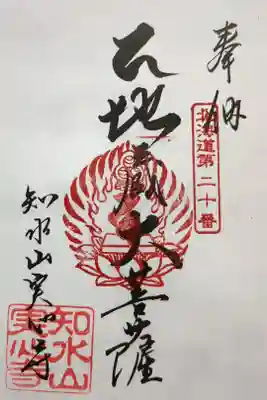 奉拝
北海道第二十番
大地蔵大菩薩
知水山実心寺
知水山
実心寺